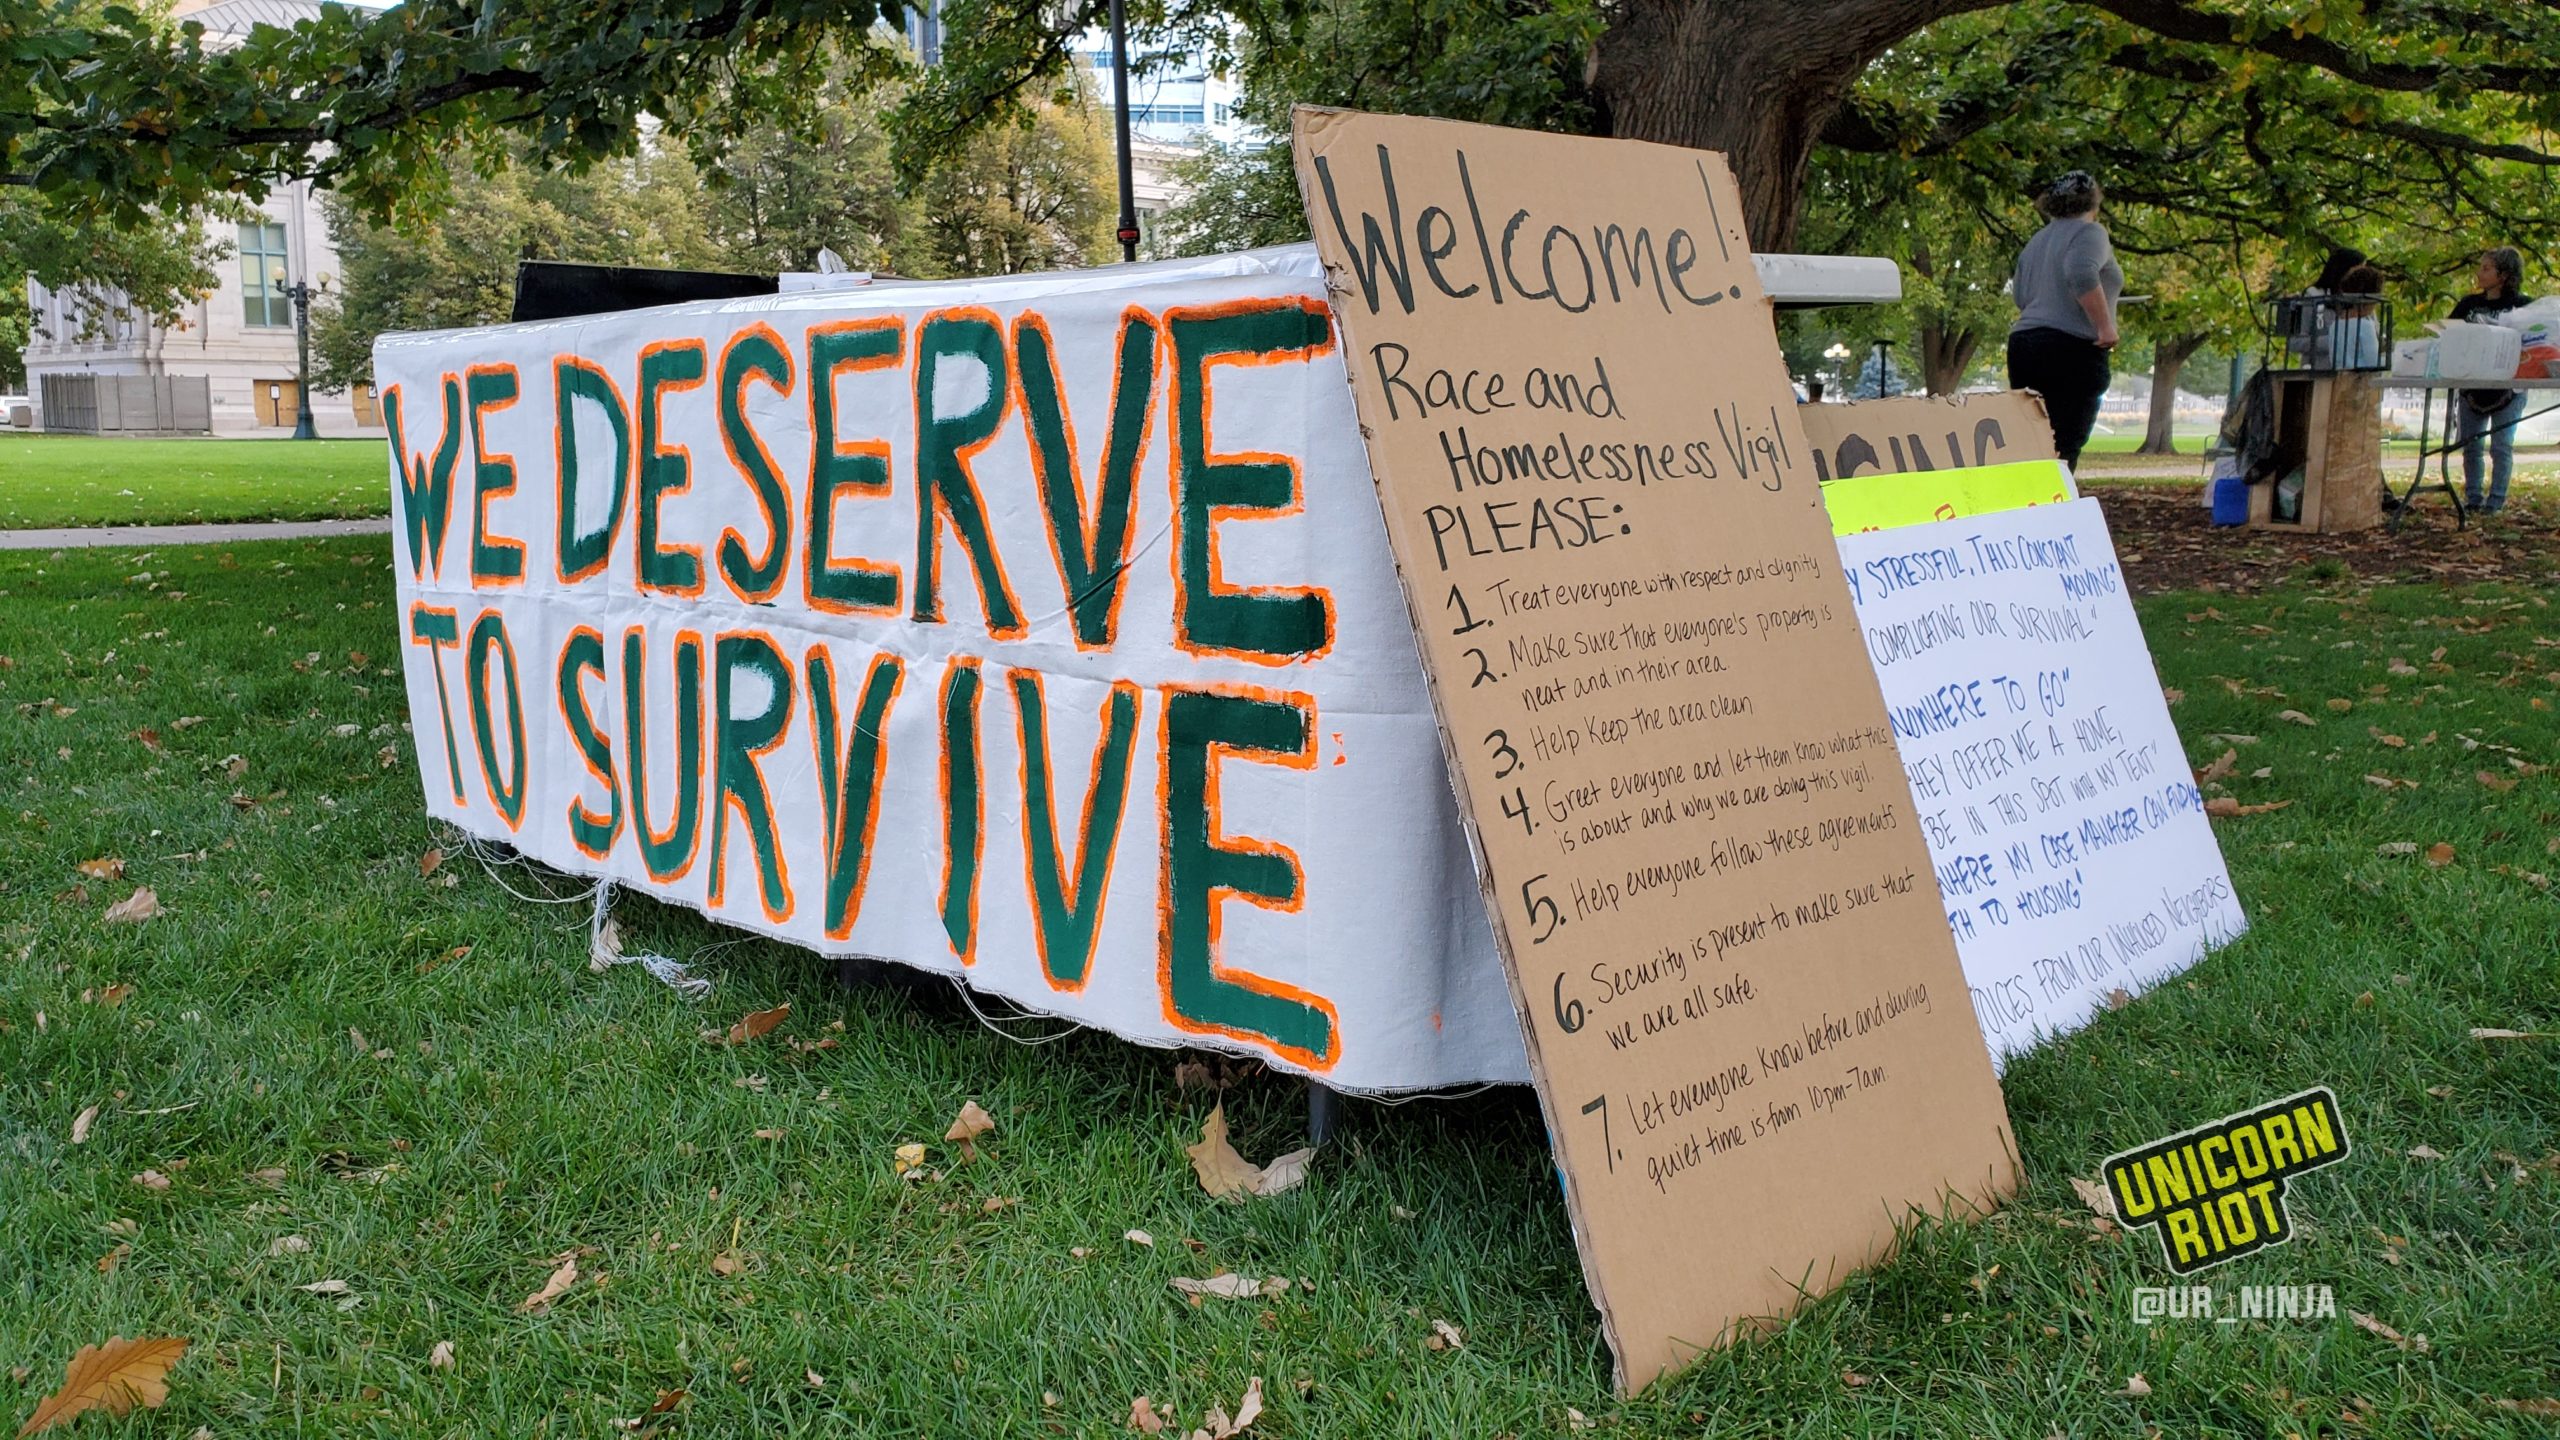 WE DESERVE
TO SURVIVE
Welcome!
Race and
Homelessness Vigil
PLEASE:
1. Treat everyone with respect and dignity
2. Make sure that everyone's property is
neat and in their area.
3. Help Keep the area clean
4. Greet everyone and let them know what this
is about and why we are doing this vigil.
5. Help everyone follow these agreements
6. Security is present to make sure that
we are all safe.
7. Let everyone know before and during
quiet time is from 10pm-7am.
SING
Y STRESSFUL, THIS CONSTANT
MOVING"
COMPLICATING OUR SURVIVAL"
NOWHERE TO GO"
HEY OFFER ME A HOME,
BE IN THIS SPOT WITH MY TENT"
WHERE MY CASE MANAGER CAN FIND ME
TH TO HOUSING"
OICES FROM OUR UNHOUSED NEIGHBORS
UNICORN
RIOT
@UR_NINJA